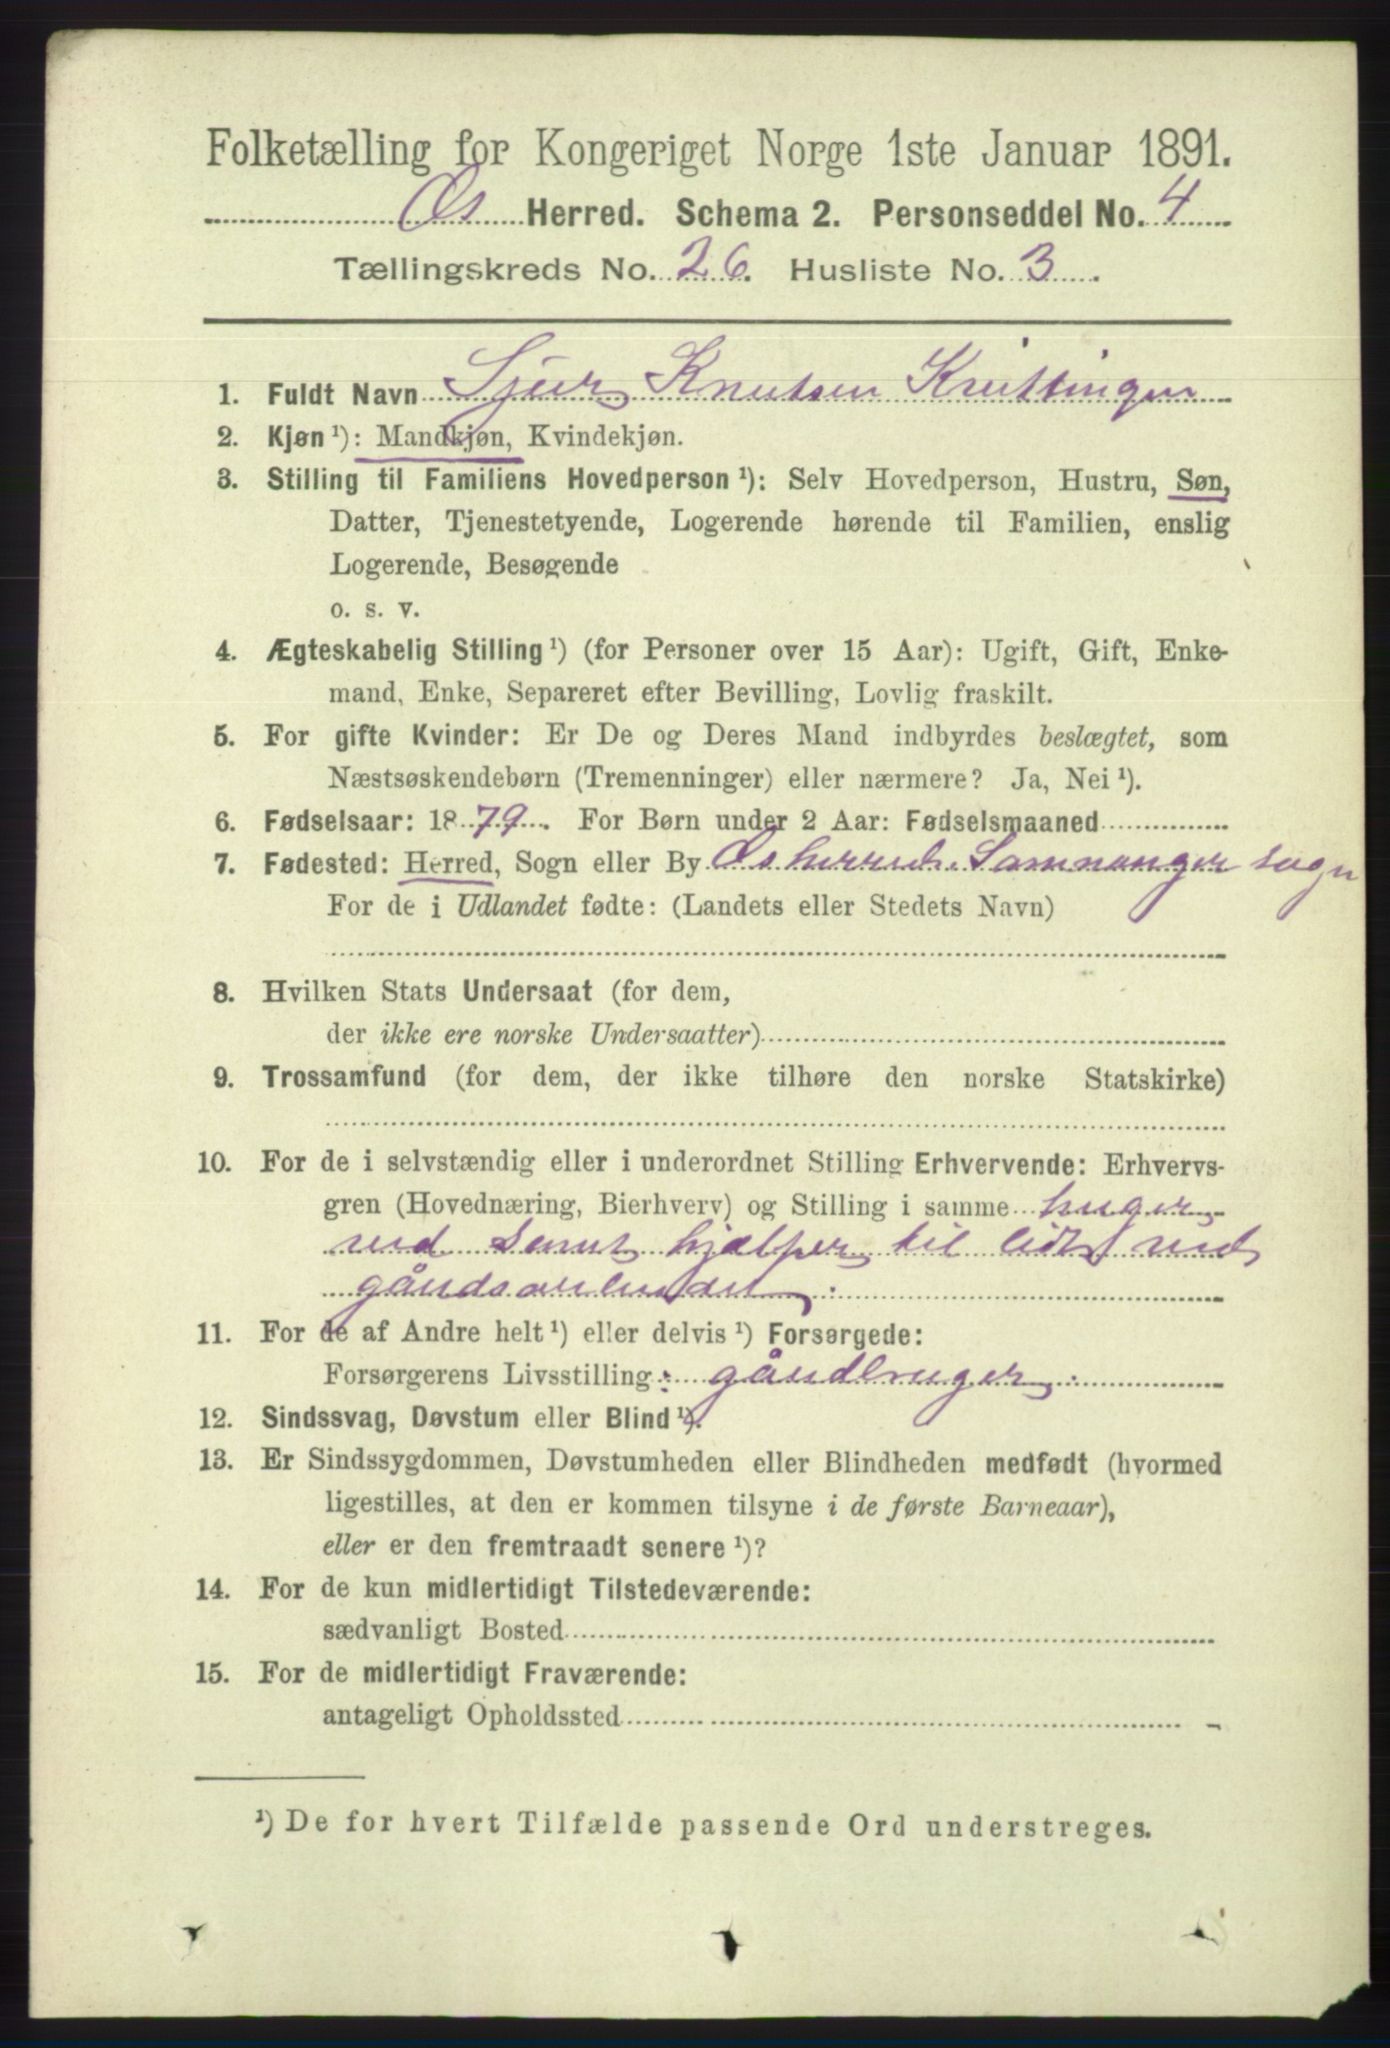 Folketælling for Kongeriget Norge 1ste Januar 1891.
Os Herred. Schema 2. Personseddel No. 4
Tællingskreds No. 26. Husliste No. 3.
1. Fuldt Navn Sjur Knutsen
2. Kjøn ¹): Mandkjøn, Kvindekjøn.
3. Stilling til Familiens Hovedperson ¹): Selv Hovedperson, Hustru, Søn,
Datter, Tjenestetyende, Logerende hørende til Familien, enslig
Logerende, Besøgende
o. s. v.
4. Ægteskabelig Stilling ¹) (for Personer over 15 Aar): Ugift, Gift, Enke-
mand, Enke, Separeret efter Bevilling, Lovlig fraskilt.
5. For gifte Kvinder: Er De og Deres Mand indbyrdes beslægtet, som
Næstsøskendebørn (Tremenninger) eller nærmere? Ja, Nei ¹).
6. Fødselsaar: 1879. For Børn under 2 Aar: Fødselsmaaned
7. Fødested: Herred, Sogn eller By Os herred. Samnanger sogn
For de i Udlandet fødte: (Landets eller Stedets Navn)
8. Hvilken Stats Undersaat (for dem,
der ikke ere norske Undersaatter)
9. Trossamfund (for dem, der ikke tilhøre den norske Statskirke)
10. For de i selvstændig eller i underordnet Stilling Erhvervende: Erhvervs-
gren (Hovednæring, Bierhverv) og Stilling i samme
hjælper til lidt ved
11. For de af Andre helt ¹) eller delvis ¹) Forsørgede:
Forsørgerens Livsstilling: gårdbruger.
12. Sindssvag, Døvstum eller Blind ¹).
13. Er Sindssygdommen, Døvstumheden eller Blindheden medfødt (hvormed
ligestilles, at den er kommen tilsyne i de første Barneaar),
eller er den fremtraadt senere ¹)?
14. For de kun midlertidigt Tilstedeværende:
sædvanligt Bosted
15. For de midlertidigt Fraværende:
antageligt Opholdssted
¹) De for hvert Tilfælde passende Ord understreges.